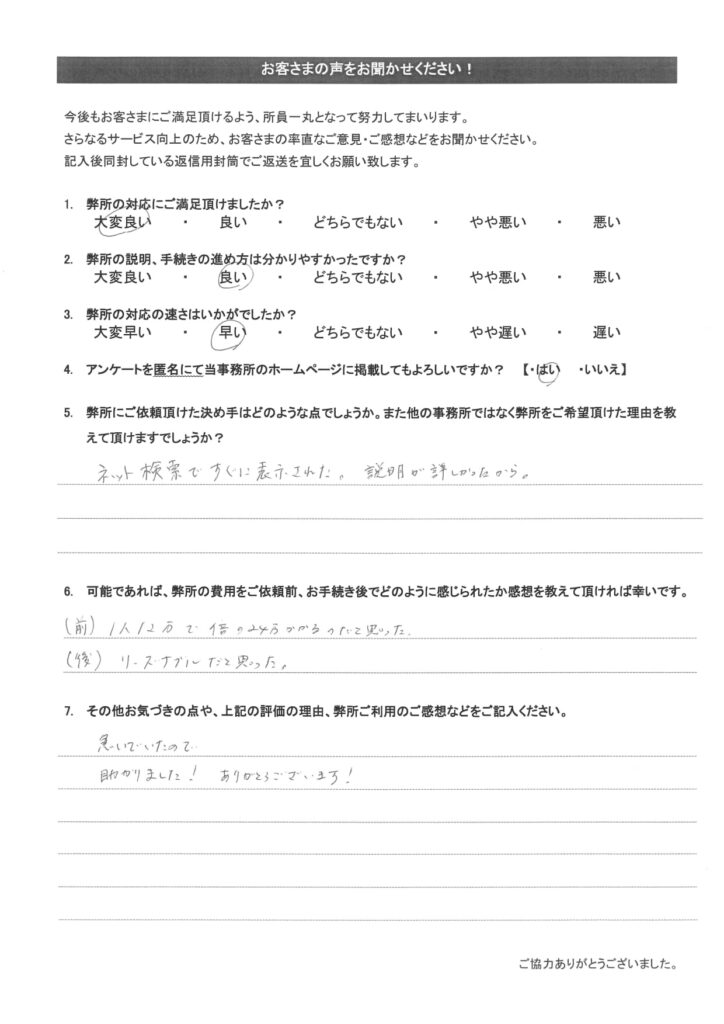 お客さまの声をお聞かせください！
今後もお客さまにご満足頂けるよう、所員一丸となって努力してまいります。
さらなるサービス向上のため、お客さまの率直なご意見・ご感想などをお聞かせください。
記入後同封している返信用封筒でご返送を宜しくお願い致します。
1. 弊所の対応にご満足頂けましたか？
大変良い ・ 良い ・ どちらでもない ・ やや悪い ・ 悪い
2. 弊所の説明、手続きの進め方は分かりやすかったですか？
大変良い ・ 良い ・ どちらでもない ・ やや悪い ・ 悪い
3. 弊所の対応の速さはいかがでしたか？
大変早い ・ 早い ・ どちらでもない ・ やや遅い ・ 遅い
4. アンケートを匿名にて当事務所のホームページに掲載してもよろしいですか？ 【・はい ・いいえ】
5. 弊所にご依頼頂けた決め手はどのような点でしょうか。また他の事務所ではなく弊所をご希望頂けた理由を教
えて頂けますでしょうか？
ネット検索ですぐに表示された。説明が詳しかったから。
6. 可能であれば、弊所の費用をご依頼前、お手続き後でどのように感じられたか感想を教えて頂ければ幸いです。
(前) 1人12万で倍の24万かかるのだと思った.
(後) リーズナブルだと思った。
7. その他お気づきの点や、上記の評価の理由、弊所ご利用のご感想などをご記入ください。
急いでいたので
助かりました！ ありがとうございます！
ご協力ありがとうございました。